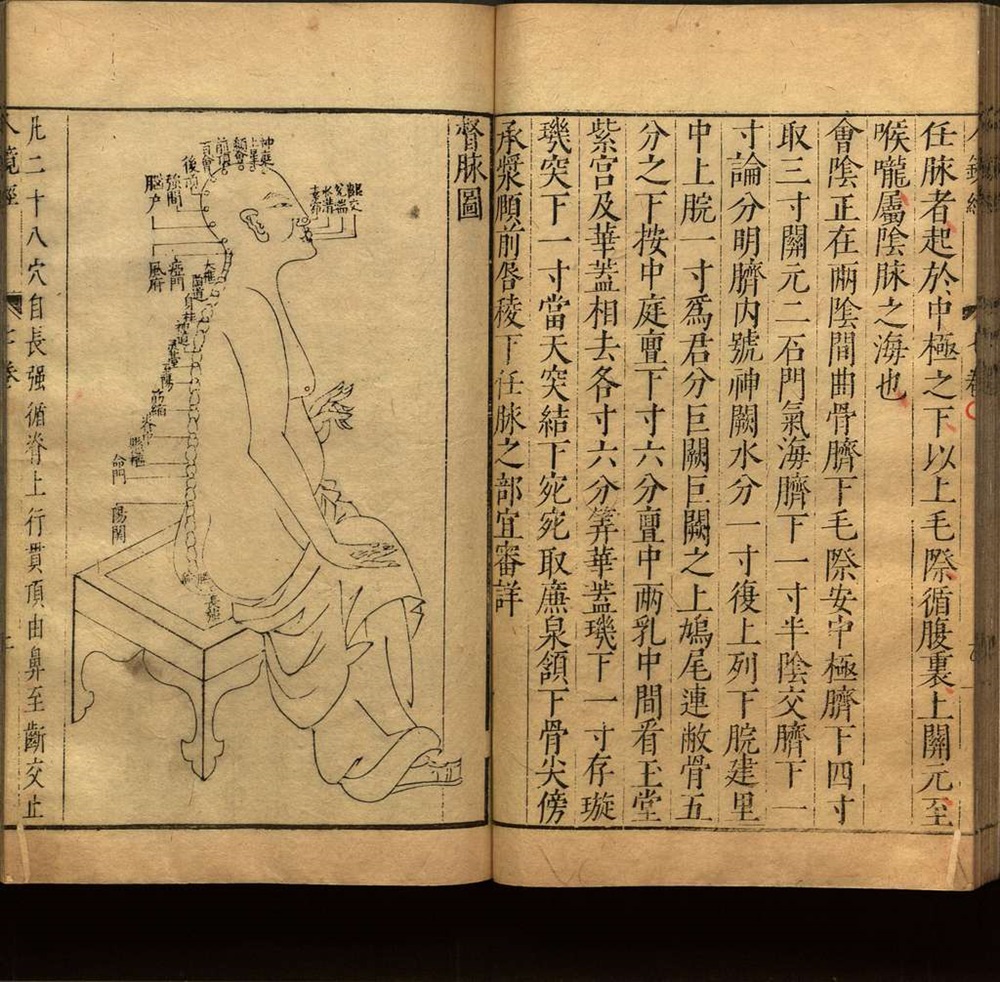 任脉者起於中極之下以上毛際循腹裏上關元至
喉嚨屬陰脉之海也
會陰正在兩陰間曲骨臍下毛際安中極臍下四寸
取三寸關元二石門氣海臍下一寸半陰交臍下一
寸論分明臍內號神闕水分一寸復上列下脘建里
中上脘一寸爲君分巨闕巨闕之上鳩尾連敝骨五
分之下按中庭亶下寸六分亶中兩乳中間看玉堂
紫宮及華蓋相去各寸六分筭華蓋璣下一寸存璇
璣突下一寸當天突結下宛宛取廉泉頷下骨尖傍
承漿頤前唇稜下任脉之部宜審詳
督脉圖
神庭
上星
顖會
前頂
百會
後頂
強間
腦戶
風府
瘂門
大椎
陶道
身柱
神道
靈臺
至陽
筋縮
脊中
懸樞
命門
陽関
長強
素窌
水溝
兊端
齦交
凢二十八穴自長强循脊上行貫頂由鼻至齗交止
人鏡經
七卷